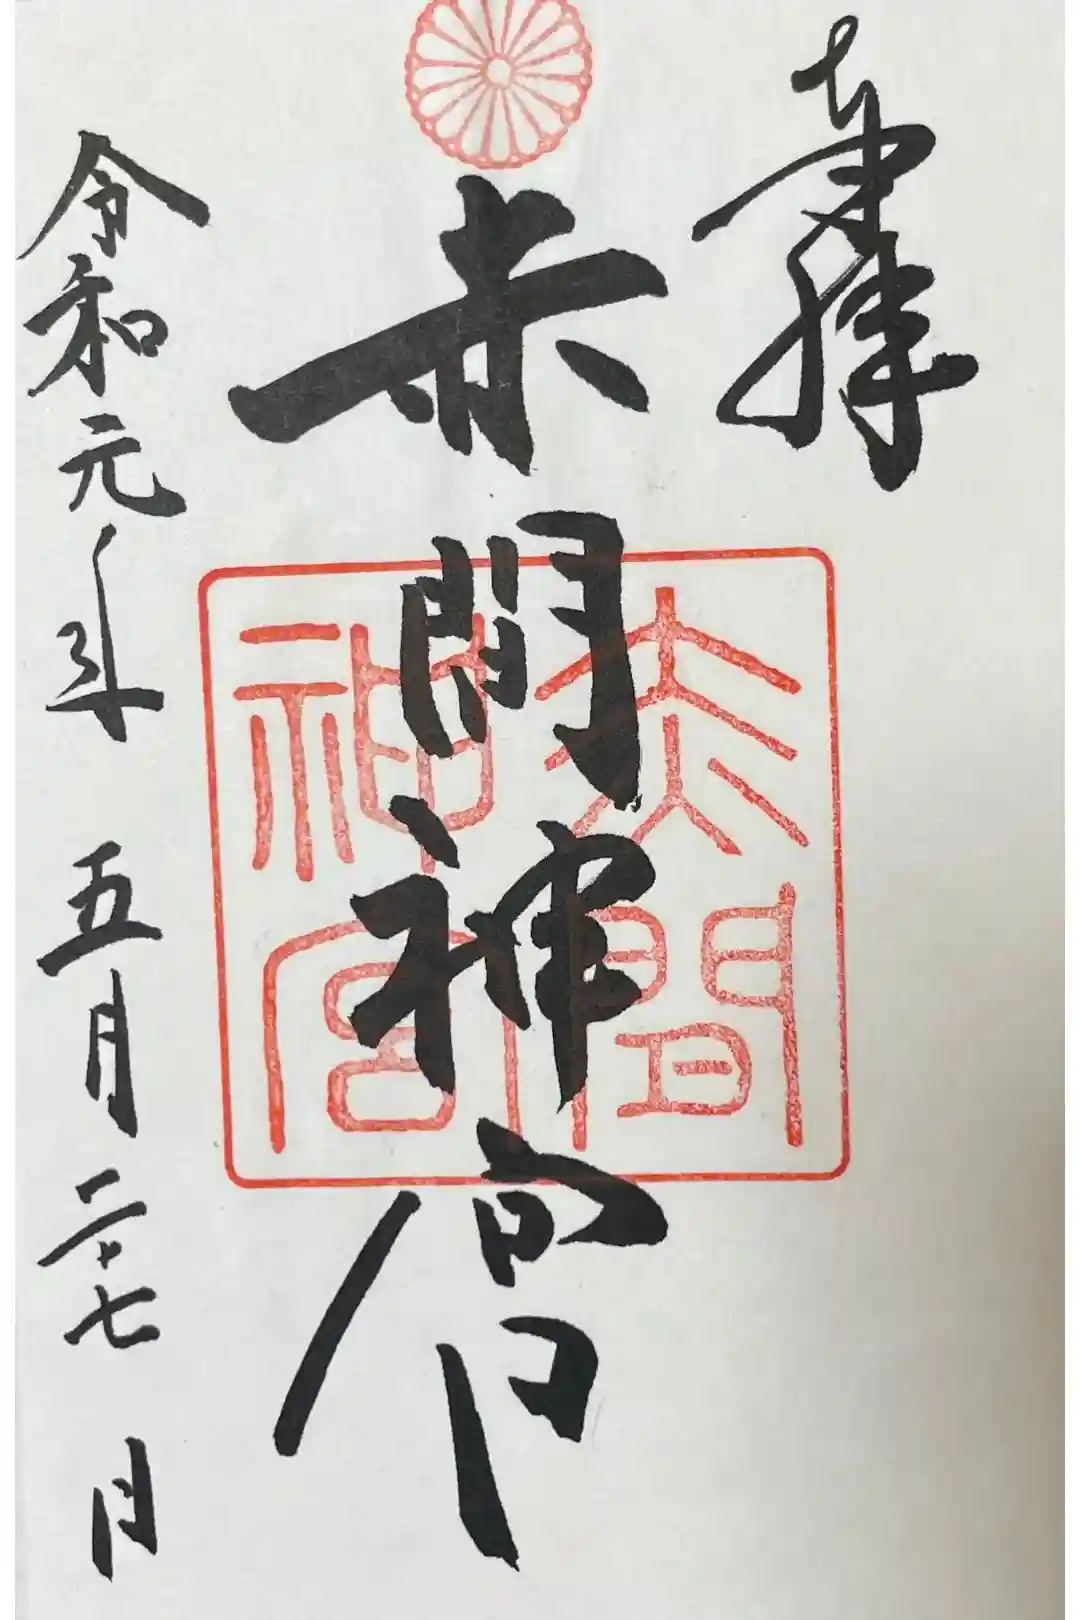 奉拝
赤間神宮
赤間神宮
令和元年 五月 二十七日